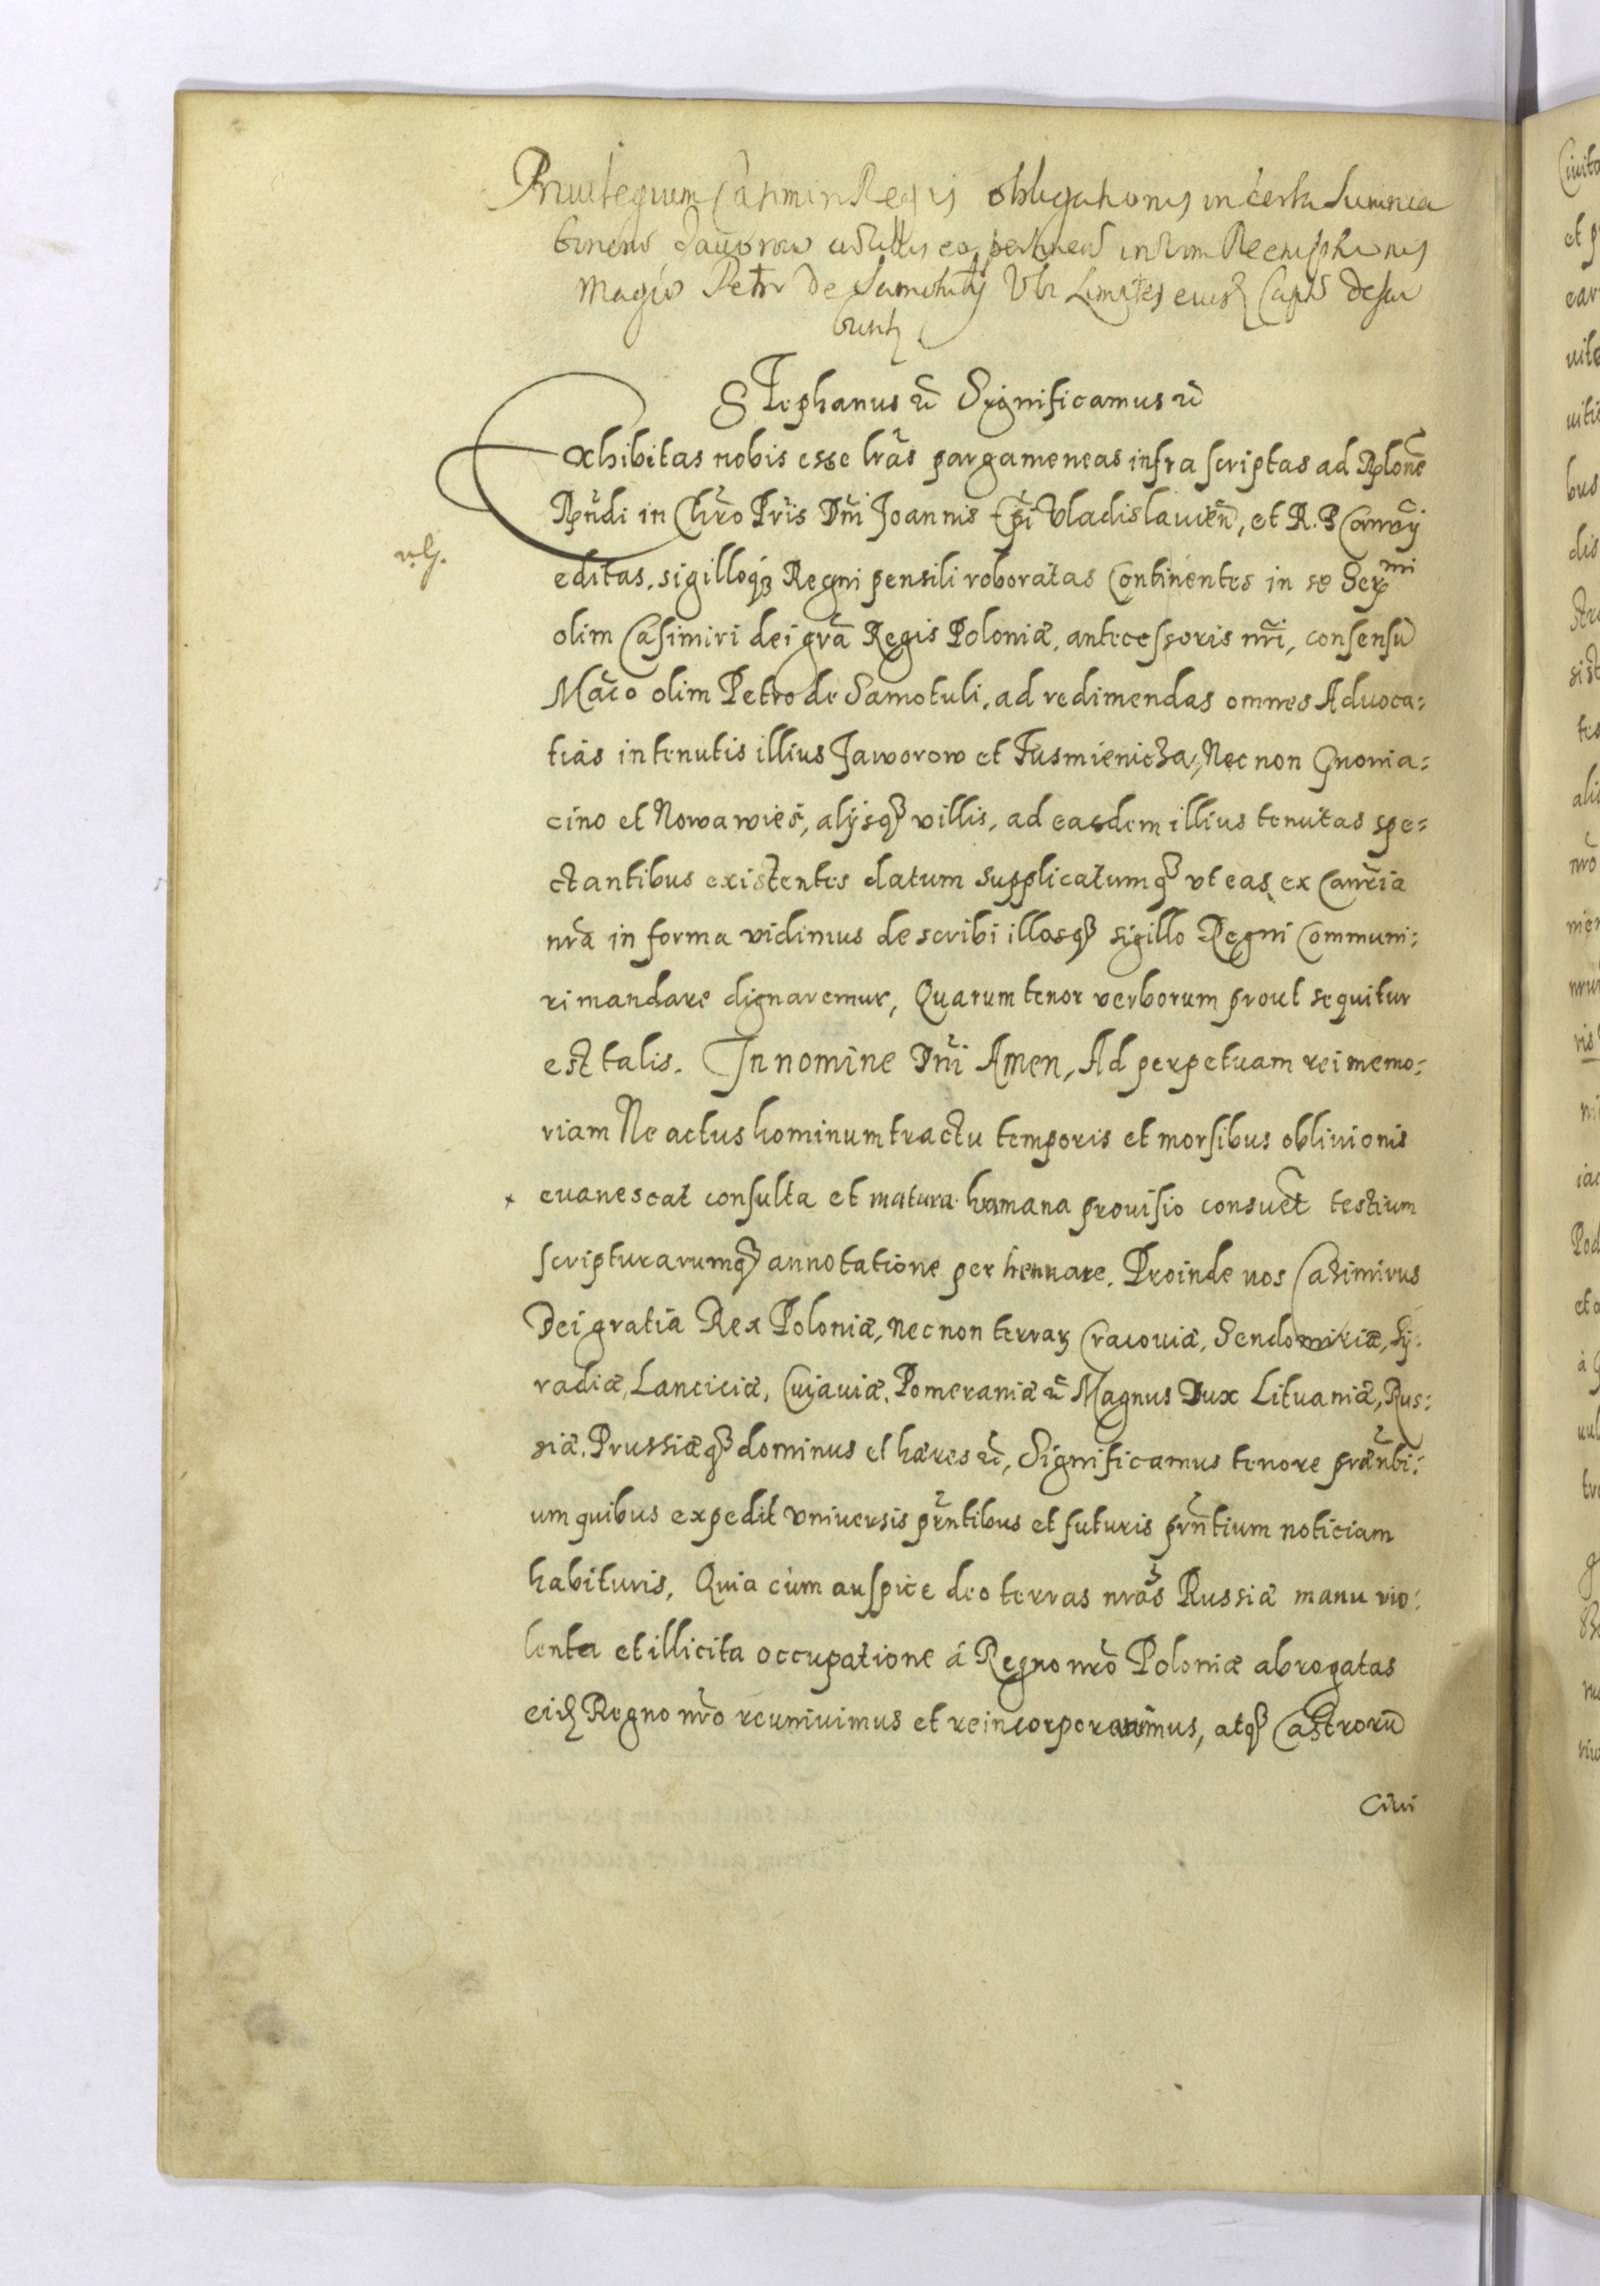 Priuilegium Casimiri Regis obligationis in certa Summa
Jauorow
Petro de Ubi Limites
Stephanus etc Significamus etc
Exhibitas nobis esse lras pargameneas infra scriptas ad Rlone
Rndi in Chro Pris Dni Joannis Epi Vladislauien, et R. P Canrij
editas, sigilloq3 Regni pensili roboratas Continentes in se Sermi
olim Casimiri dei gra Regis Poloniæ, antecessoris nri, consensu
Maco olim Petro de Samotuli, ad redimendas omnes Aduoca=
tias in tenutis illius Jaworow et Tusmienicza, Nec non Gnonia=
cino et Nowawies, alijsq3 villis, ad easdem illius tenutas spe=
ctantibus existentes datum supplicatumq3 vt eas ex Canria
nra in forma vidimus describi illasq3 sigillo Regni Communi=
ri mandare dignaremur, Quarum tenor verborum prout sequitur
est talis. In nomine Dni Amen, Ad perpetuam rei memo=
riam Ne actus hominum tractu temporis et morsibus obliuionis
x euanescat consulta et matura humana prouisio consuet testium
scripturarumq3 annotatione per hennare. Proinde nos Casimirus
Dei gratia Rex Poloniæ, nec non terrar Cracouiæ, Sendomiriæ, Sy=
radiæ, Lanciciæ, Cujauiæ, Pomeraniæ etc Magnus Dux Lituaniæ, Rus=
siæ, Prussiæq3 dominus et hæres etc, Significamus tenore prænti=
um quibus expedit vniuersis prntibus et futuris prntium noticiam
habituris, Quia cum auspice deo terras nras Russiæ manu vio=
lenta et illicita occupatione á Regno nro Poloniæ abrogatas
eid Regno nro reuniuimus et reincorporauimus, atq3 Castroru
Ciui